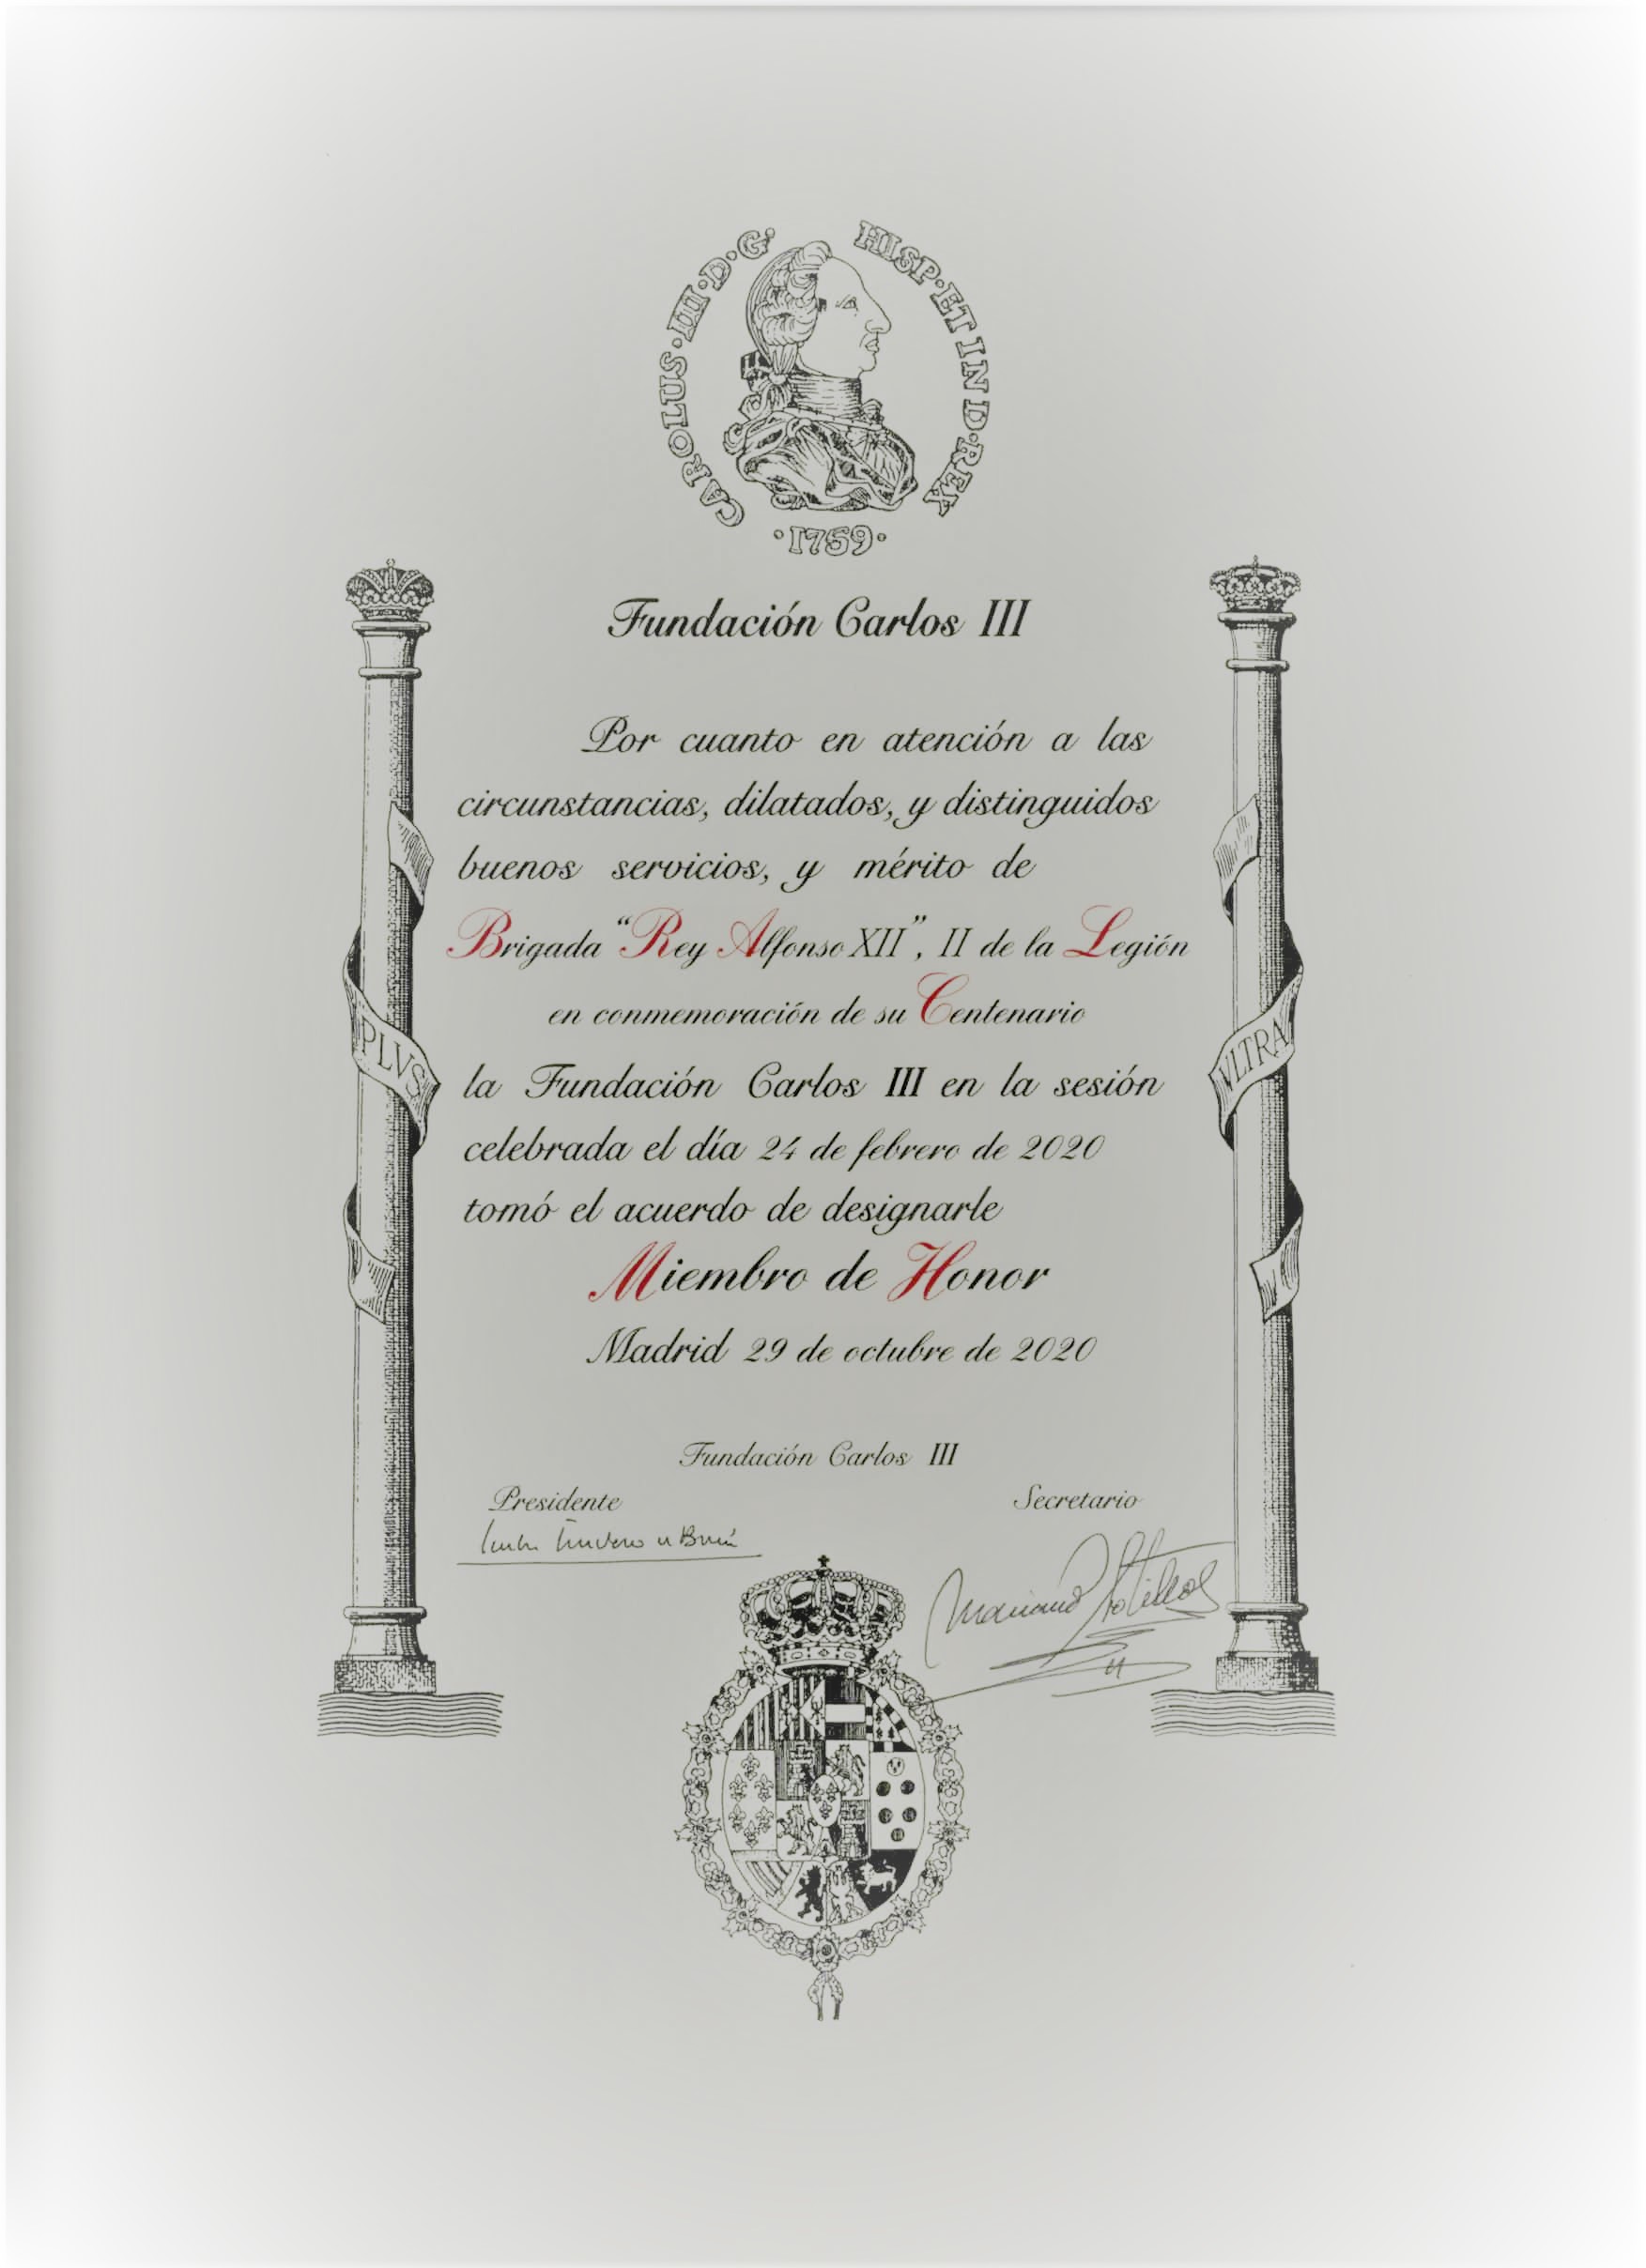 CAROLUS·III·D·G· HISP·ET IND·REX
·1759·
Fundación Carlos III
Por cuanto en atención a las
circunstancias, dilatados, y distinguidos
buenos servicios, y mérito de
Brigada “Rey Alfonso XII”, II de la Legión
en conmemoración de su Centenario
PLVS
VLTRA
la Fundación Carlos III en la sesión
celebrada el día 24 de febrero de 2020
tomó el acuerdo de designarle
Miembro de Honor
Madrid 29 de octubre de 2020
Fundación Carlos III
Presidente
Secretario
Mariano